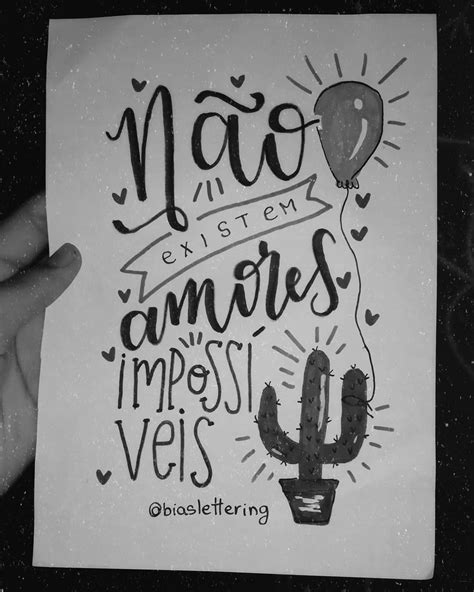 Não
existem
amores
impossí
veis
@biaslettering